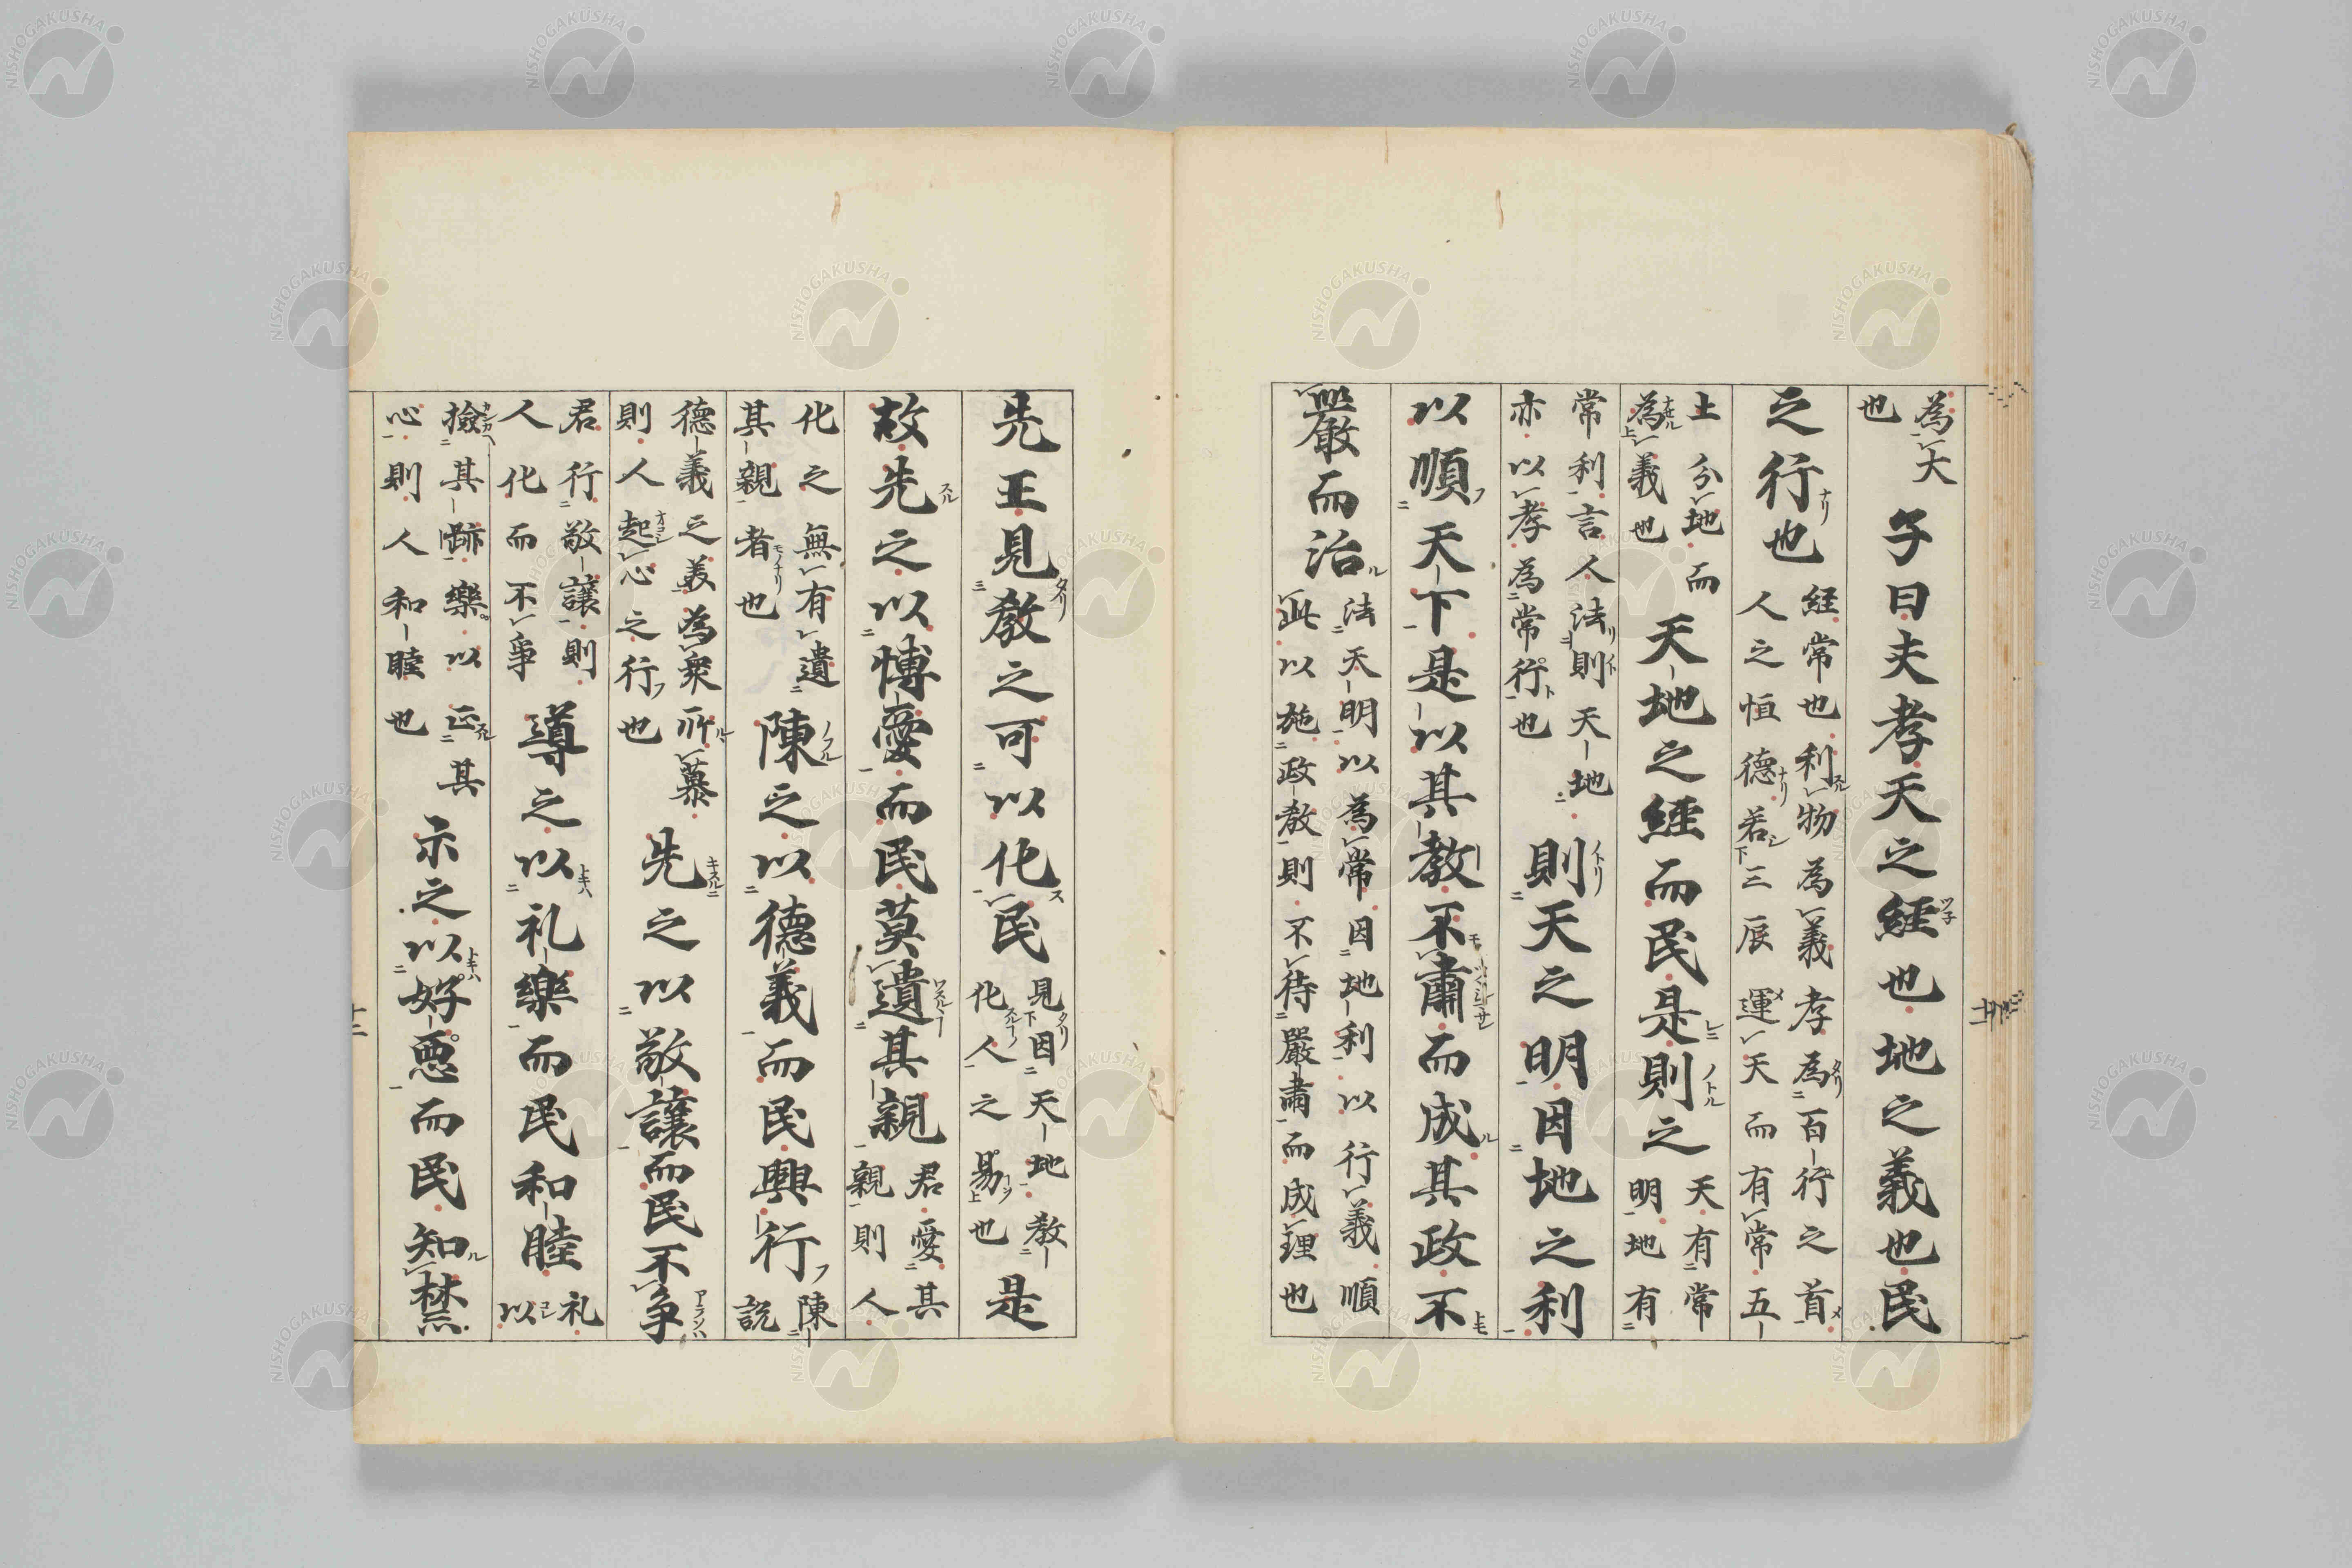 為大
也
子曰夫孝天之經也地之義也民
之行也
経常也利物為義孝為百行之首
人之恒德若三辰運天而有常五
土分地而
為義也
天地之經而民是則之
天有常
明地有
常利言人法則天地
亦以孝為常行也
則天之明因地之利
以順天下是以其教不肅而成其政不
嚴而治
法天明以為常因地利以行義順
此以施政教則不待嚴肅而成理也
先王見教之可以化民
見因天地教
化人之易也
是
故先之以博愛而民莫遺其親
君愛其
親則人
化之無有遺
其親者也
陳之以德義而民興行
陳
說
德義之美為衆所慕
則人起心之行也
先之以敬讓而民不爭
君行敬讓則
人化而不爭
導之以礼樂而民和睦
礼
以
撿其跡樂以正其
心則人和睦也
示之以好悪而民知禁
十二
NISHOGAKUSHA